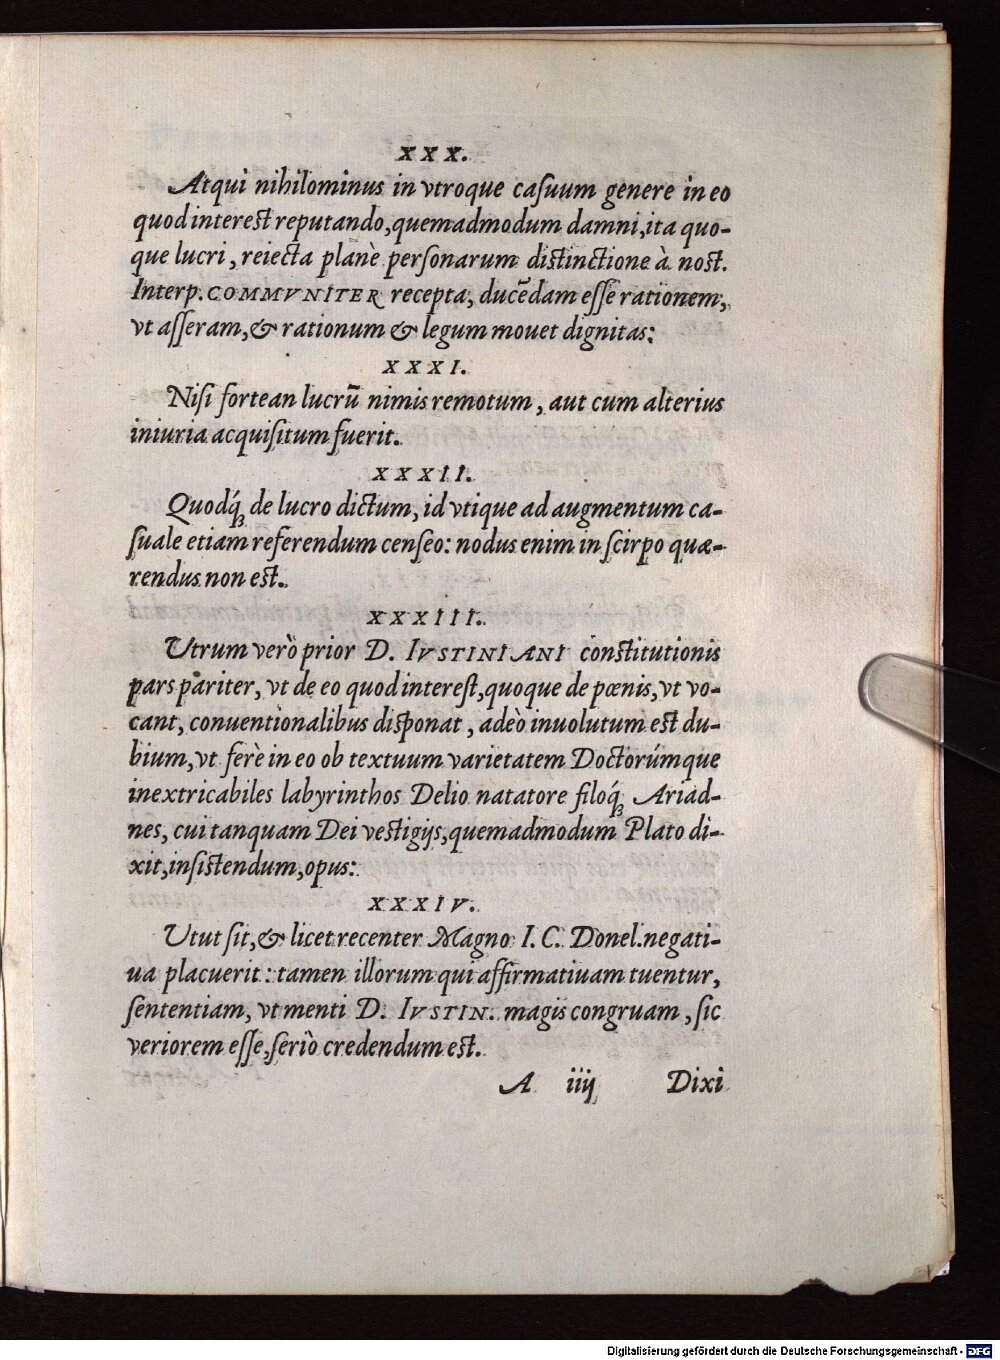 XXX.
Atqui nihilominus in vtroque casuum genere in eo
quod interest reputando, quemadmodum damni, ita quo-
que lucri, reiecta planè personarum distinctione à nost.
Interp. COMMVNITER recepta, ducēdam esse rationem,
vt asseram, & rationum & legum mouet dignitas:
XXXI.
Nisi fortean lucrū nimis remotum, aut cum alterius
iniuria acquisitum fuerit.
XXXII.
Quodq́; de lucro dictum, id vtique ad augmentum ca-
suale etiam referendum censeo: nodus enim in scirpo quæ-
rendus non est.
XXXIII.
Utrum verò prior D. IVSTINIANI constitutionis
pars pariter, vt de eo quod interest, quoque de pœnis, vt vo-
cant, conuentionalibus disponat, adeò inuolutum est du-
bium, vt ferè in eo ob textuum varietatem Doctorúmque
inextricabiles labyrinthos Delio natatore filoq́; Ariad-
nes, cui tanquam Dei vestigijs, quemadmodum Plato di-
xit, insistendum, opus:
XXXIV.
Utut sit, & licet recenter Magno I. C. Donel. negati-
ua placuerit: tamen illorum qui affirmatiuam tuentur,
sententiam, vt menti D. IVSTIN. magis congruam, sic
veriorem esse, seriò credendum est.
A iiij Dixi
Digitalisierung gefördert durch die Deutsche Forschungsgemeinschaft - DFG